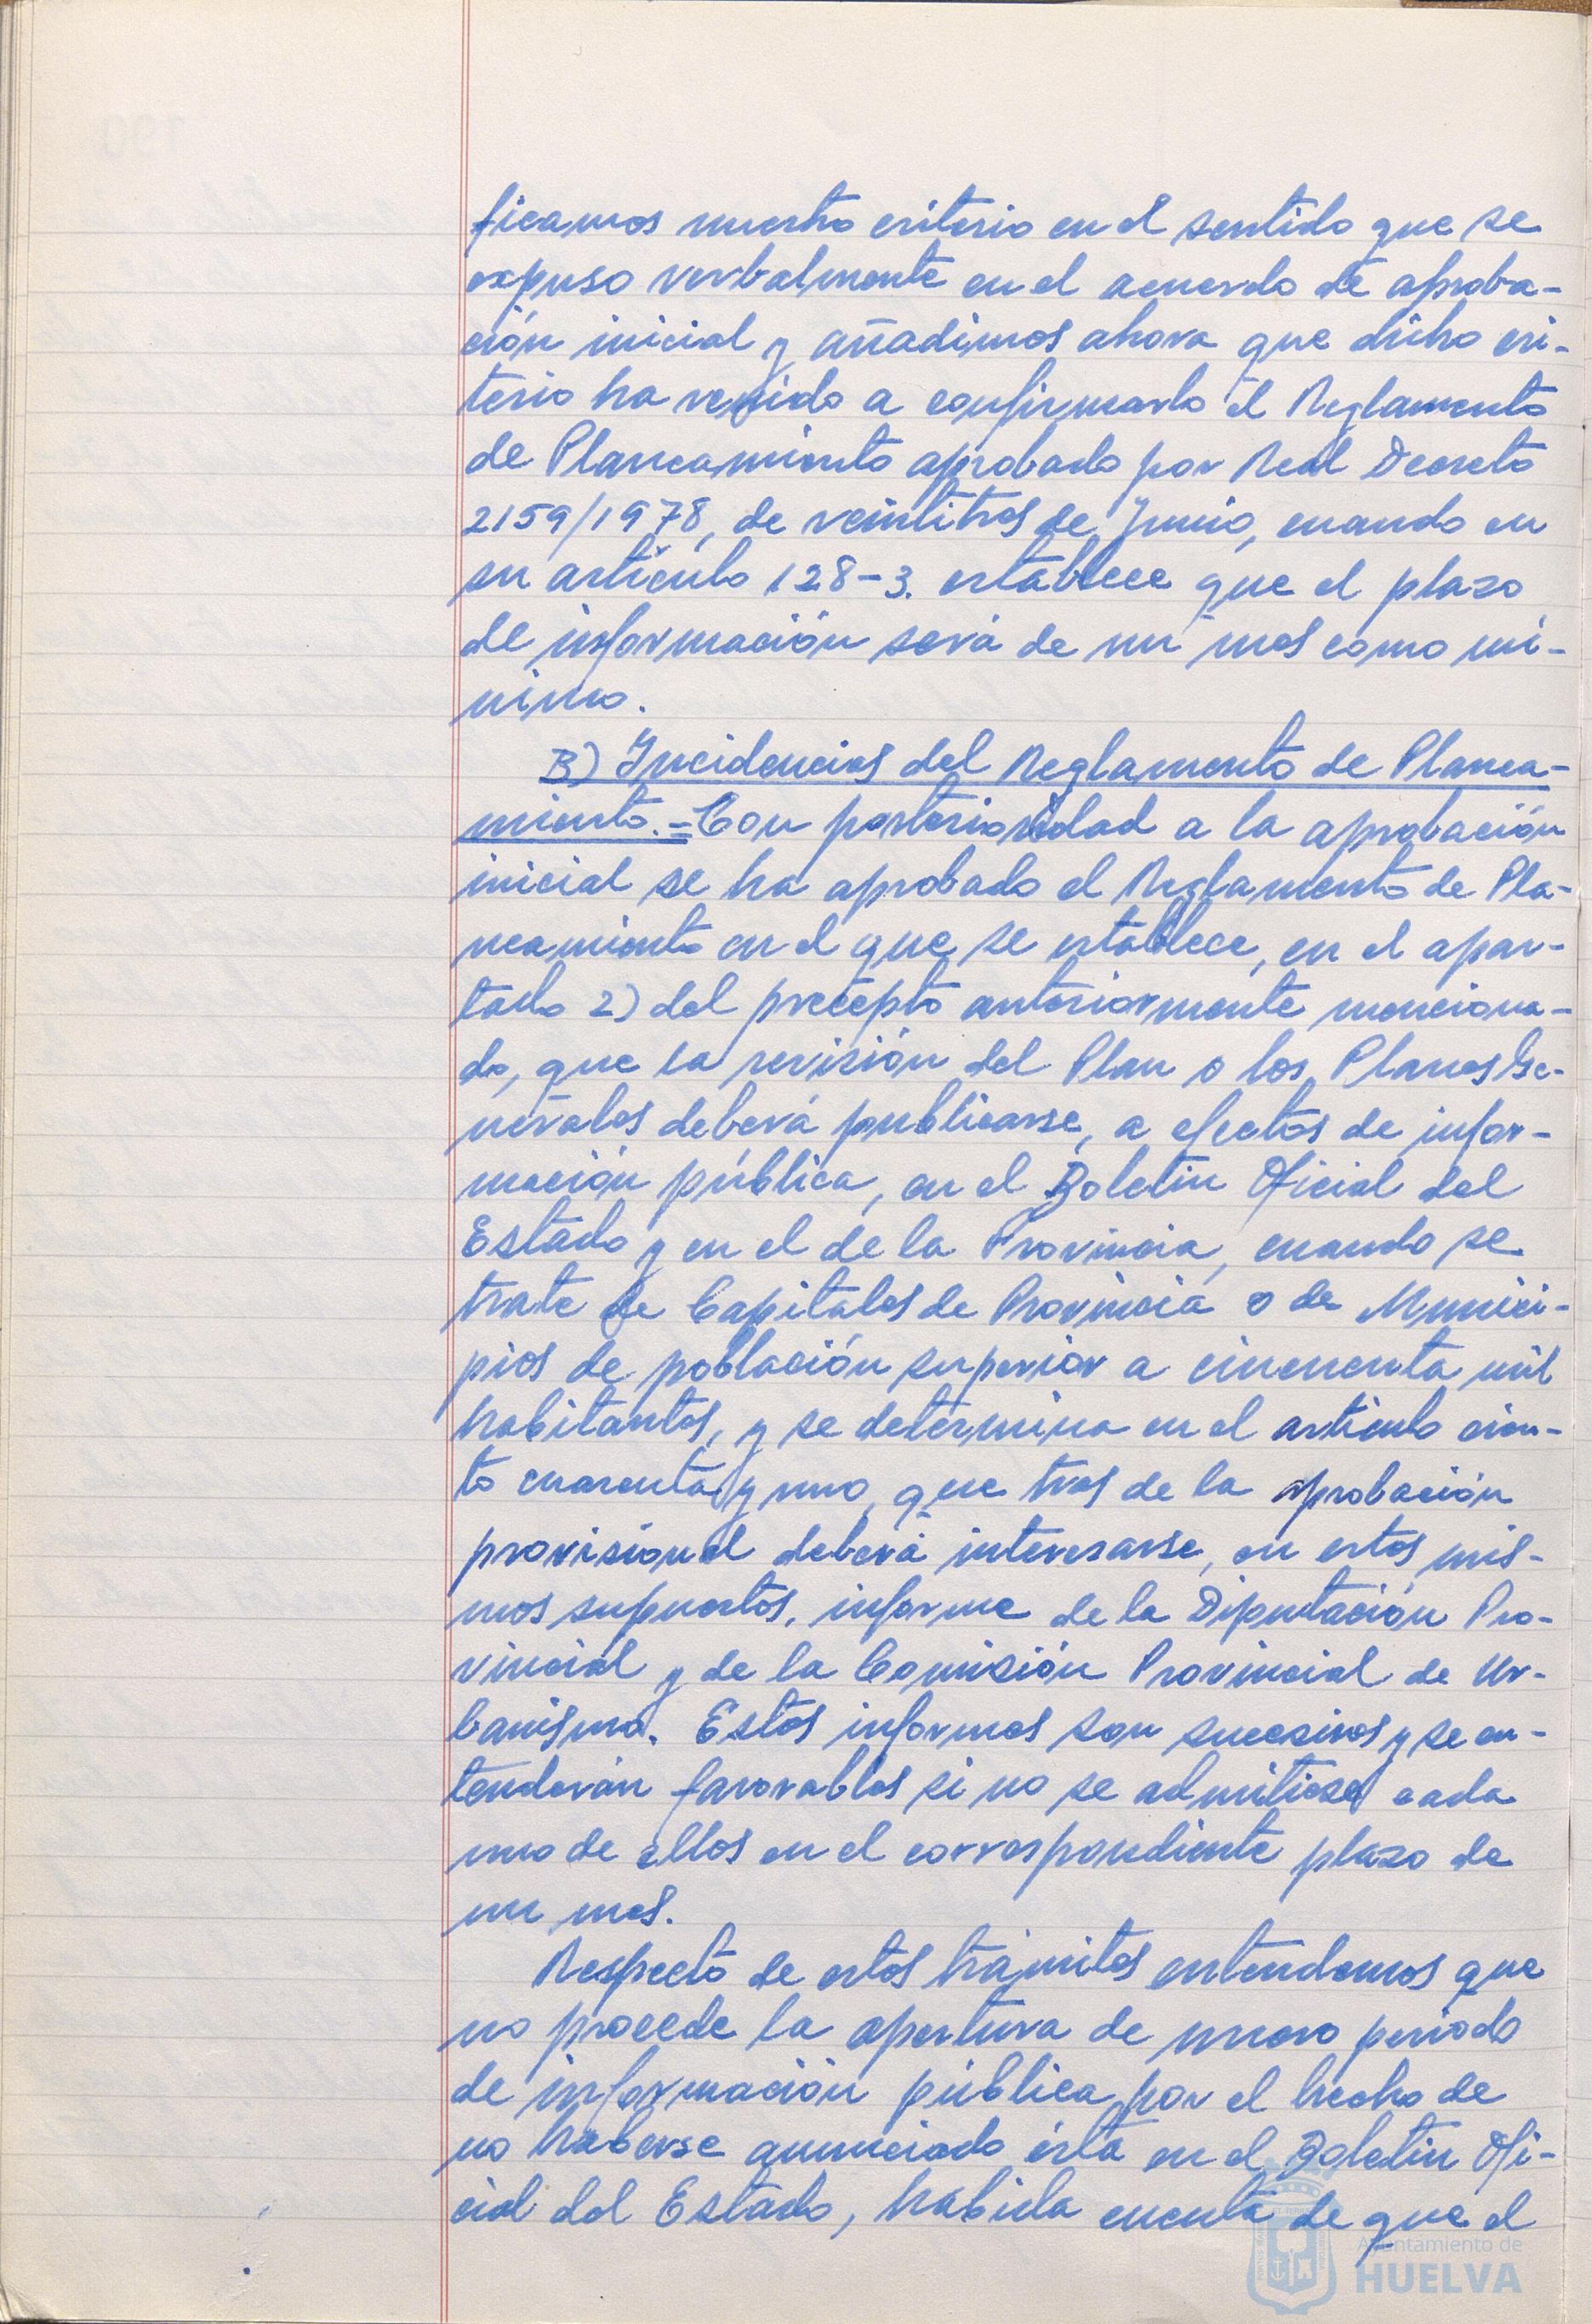 ficamos nuestro criterio en el sentido que se
expuso verbalmente en el acuerdo de aproba-
ción inicial y añadimos ahora que dicho cri-
terio ha venido a confirmarlo el Reglamento
de Planeamiento aprobado por Real Decreto
2159/1978, de veintitres de Junio, cuando en
su artículo 128-3. establece que el plazo
de información será de un mes como mí-
nimo.
B) Incidencias del Reglamento de Planea-
miento.= Con posterioridad a la aprobación
inicial se ha aprobado el Reglamento de Pla-
neamiento en el que se establece, en el apar-
tado 2) del precepto anteriormente menciona-
do, que la revisión del Plan o los Planes Ge-
nerales deberá publicarse, a efectos de infor-
mación pública, en el Boletin Oficial del
Estado y en el de la Provincia, cuando se
trate de Capitales de Provincia o de Munici-
pios de población superior a cincuenta mil
habitantes, y se determina en el artículo cien-
to cuarenta y uno, que tras de la aprobación
provisional deberá interesarse, en estos mis-
mos supuestos, informe de la Diputación Pro-
vincial y de la Comisión Provincial de Ur-
banismo. Estos informes son sucesivos y se en-
tenderán favorables si no se admitiese cada
uno de ellos en el correspondiente plazo de
un mes.
Respecto de estos trámites entendemos que
no procede la apertura de nuevo periodo
de información pública por el hecho de
no haberse anunciado ésta en el Boletin Ofi-
cial del Estado, habida cuenta de que el
Ayuntamiento de
HUELVA